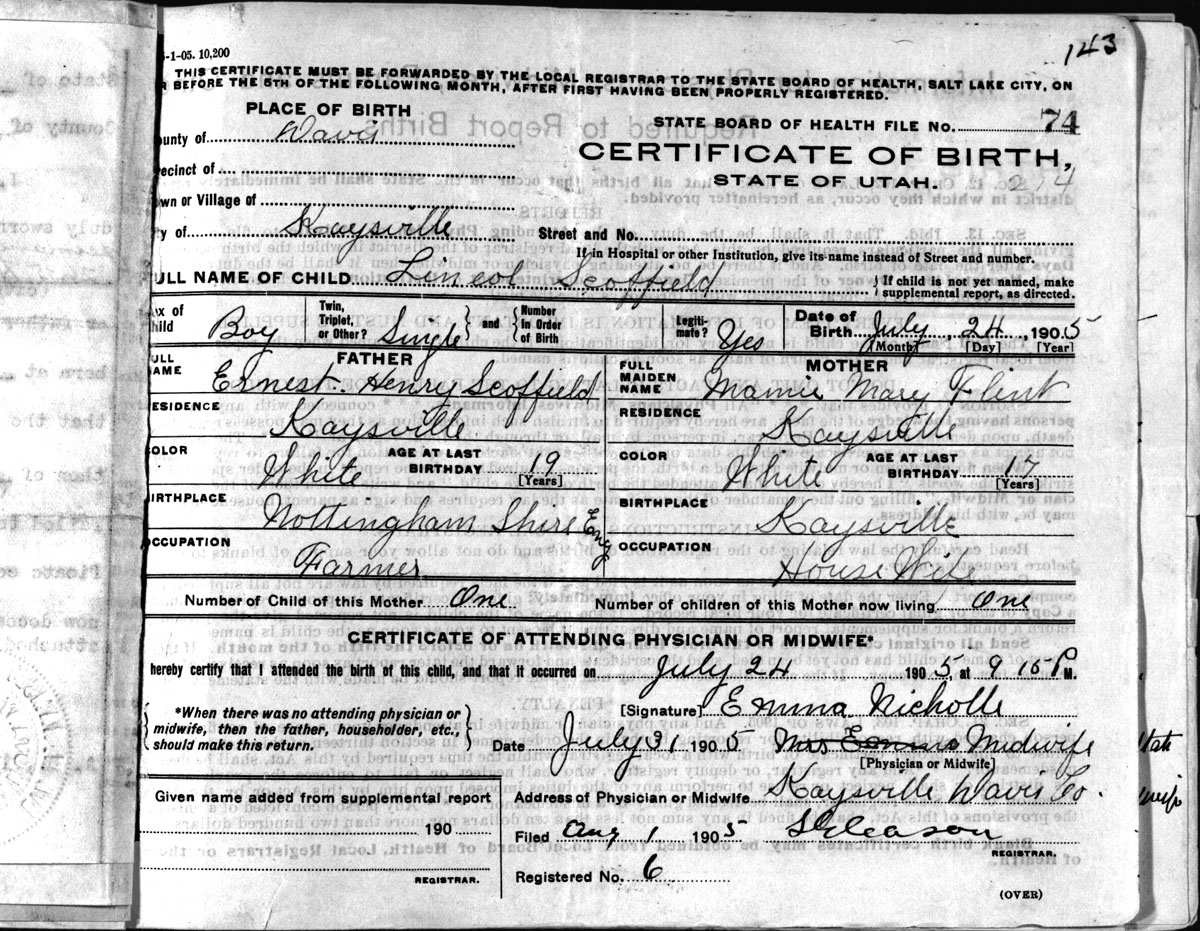 143
5-1-05. 10,200
THIS CERTIFICATE MUST BE FORWARDED BY THE LOCAL REGISTRAR TO THE STATE BOARD OF HEALTH, SALT LAKE CITY, ON
R BEFORE THE 5TH OF THE FOLLOWING MONTH, AFTER FIRST HAVING BEEN PROPERLY REGISTERED.
PLACE OF BIRTH
STATE BOARD OF HEALTH FILE NO. 74
ounty of Davis
CERTIFICATE OF BIRTH,
recinct of
STATE OF UTAH. 274
own or Village of
ty of Kaysville
Street and No.
If in Hospital or other Institution, give its name instead of Street and number.
ULL NAME OF CHILD Lincol Scoffield { If child is not yet named, make supplemental report, as directed.
ex of hild Boy Twin, Triplet, or Other? Single } and { Number In Order of Birth Legiti- mate? Yes Date of Birth July 24, 1905
[Month] [Day] [Year]
FATHER MOTHER
ULL NAME Ernest Henry Scoffield FULL MAIDEN NAME Mamie Mary Flint
RESIDENCE Kaysville RESIDENCE Kaysville
COLOR White AGE AT LAST BIRTHDAY 19 [Years] COLOR White AGE AT LAST BIRTHDAY 17 [Years]
BIRTHPLACE Nottingham Shire Eng BIRTHPLACE Kaysville
OCCUPATION Farmer OCCUPATION House Wife
Number of Child of this Mother One Number of children of this Mother now living One
CERTIFICATE OF ATTENDING PHYSICIAN OR MIDWIFE*
hereby certify that I attended the birth of this child, and that it occurred on July 24 1905, at 9 15 P M.
[Signature] Emma Nicholls
{ *When there was no attending physician or midwife, then the father, householder, etc., should make this return. }
Date July 31 1905 Mrs Midwife
[Physician or Midwife]
Given name added from supplemental report
Address of Physician or Midwife Kaysville Davis Co.
190
Filed Aug 1 1905 S Gleason
REGISTRAR.
REGISTRAR.
Registered No. 6
(OVER)